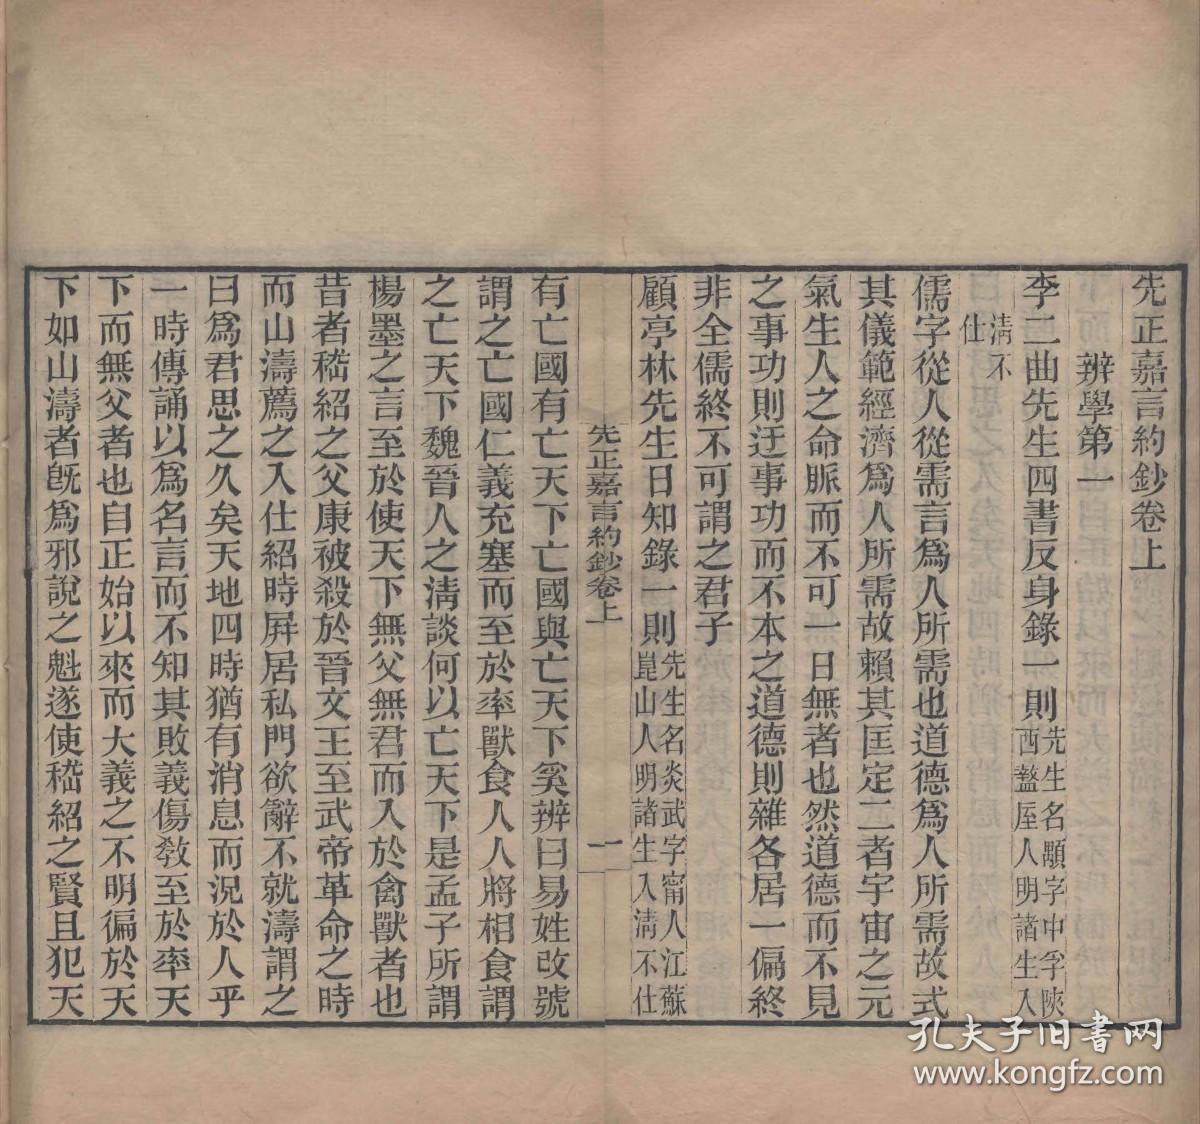 先正嘉言約鈔卷上
辨學第一
李二曲先生四書反身錄一則先生名顒字中孚陝西盩厔人明諸生入
淸不仕
儒字從人從需言爲人所需也道德爲人所需故式
其儀範經濟爲人所需故賴其匡定二者宇宙之元
氣生人之命脈而不可一日無者也然道德而不見
之事功則迂事功而不本之道德則雜各居一偏終
非全儒終不可謂之君子
顧亭林先生日知錄一則先生名炎武字甯人江蘇崑山人明諸生入淸不仕
先正嘉言約鈔卷上
一
有亡國有亡天下亡國與亡天下奚辨曰易姓改號
謂之亡國仁義充塞而至於率獸食人人將相食謂
之亡天下魏晉人之淸談何以亡天下是孟子所謂
楊墨之言至於使天下無父無君而入於禽獸者也
昔者嵇紹之父康被殺於晉文王至武帝革命之時
而山濤薦之入仕紹時屛居私門欲辭不就濤謂之
曰爲君思之久矣天地四時猶有消息而況於人乎
一時傳誦以爲名言而不知其敗義傷敎至於率天
下而無父者也自正始以來而大義之不明徧於天
下如山濤者旣爲邪說之魁遂使嵇紹之賢且犯天
孔夫子旧书网
www.kongfz.com